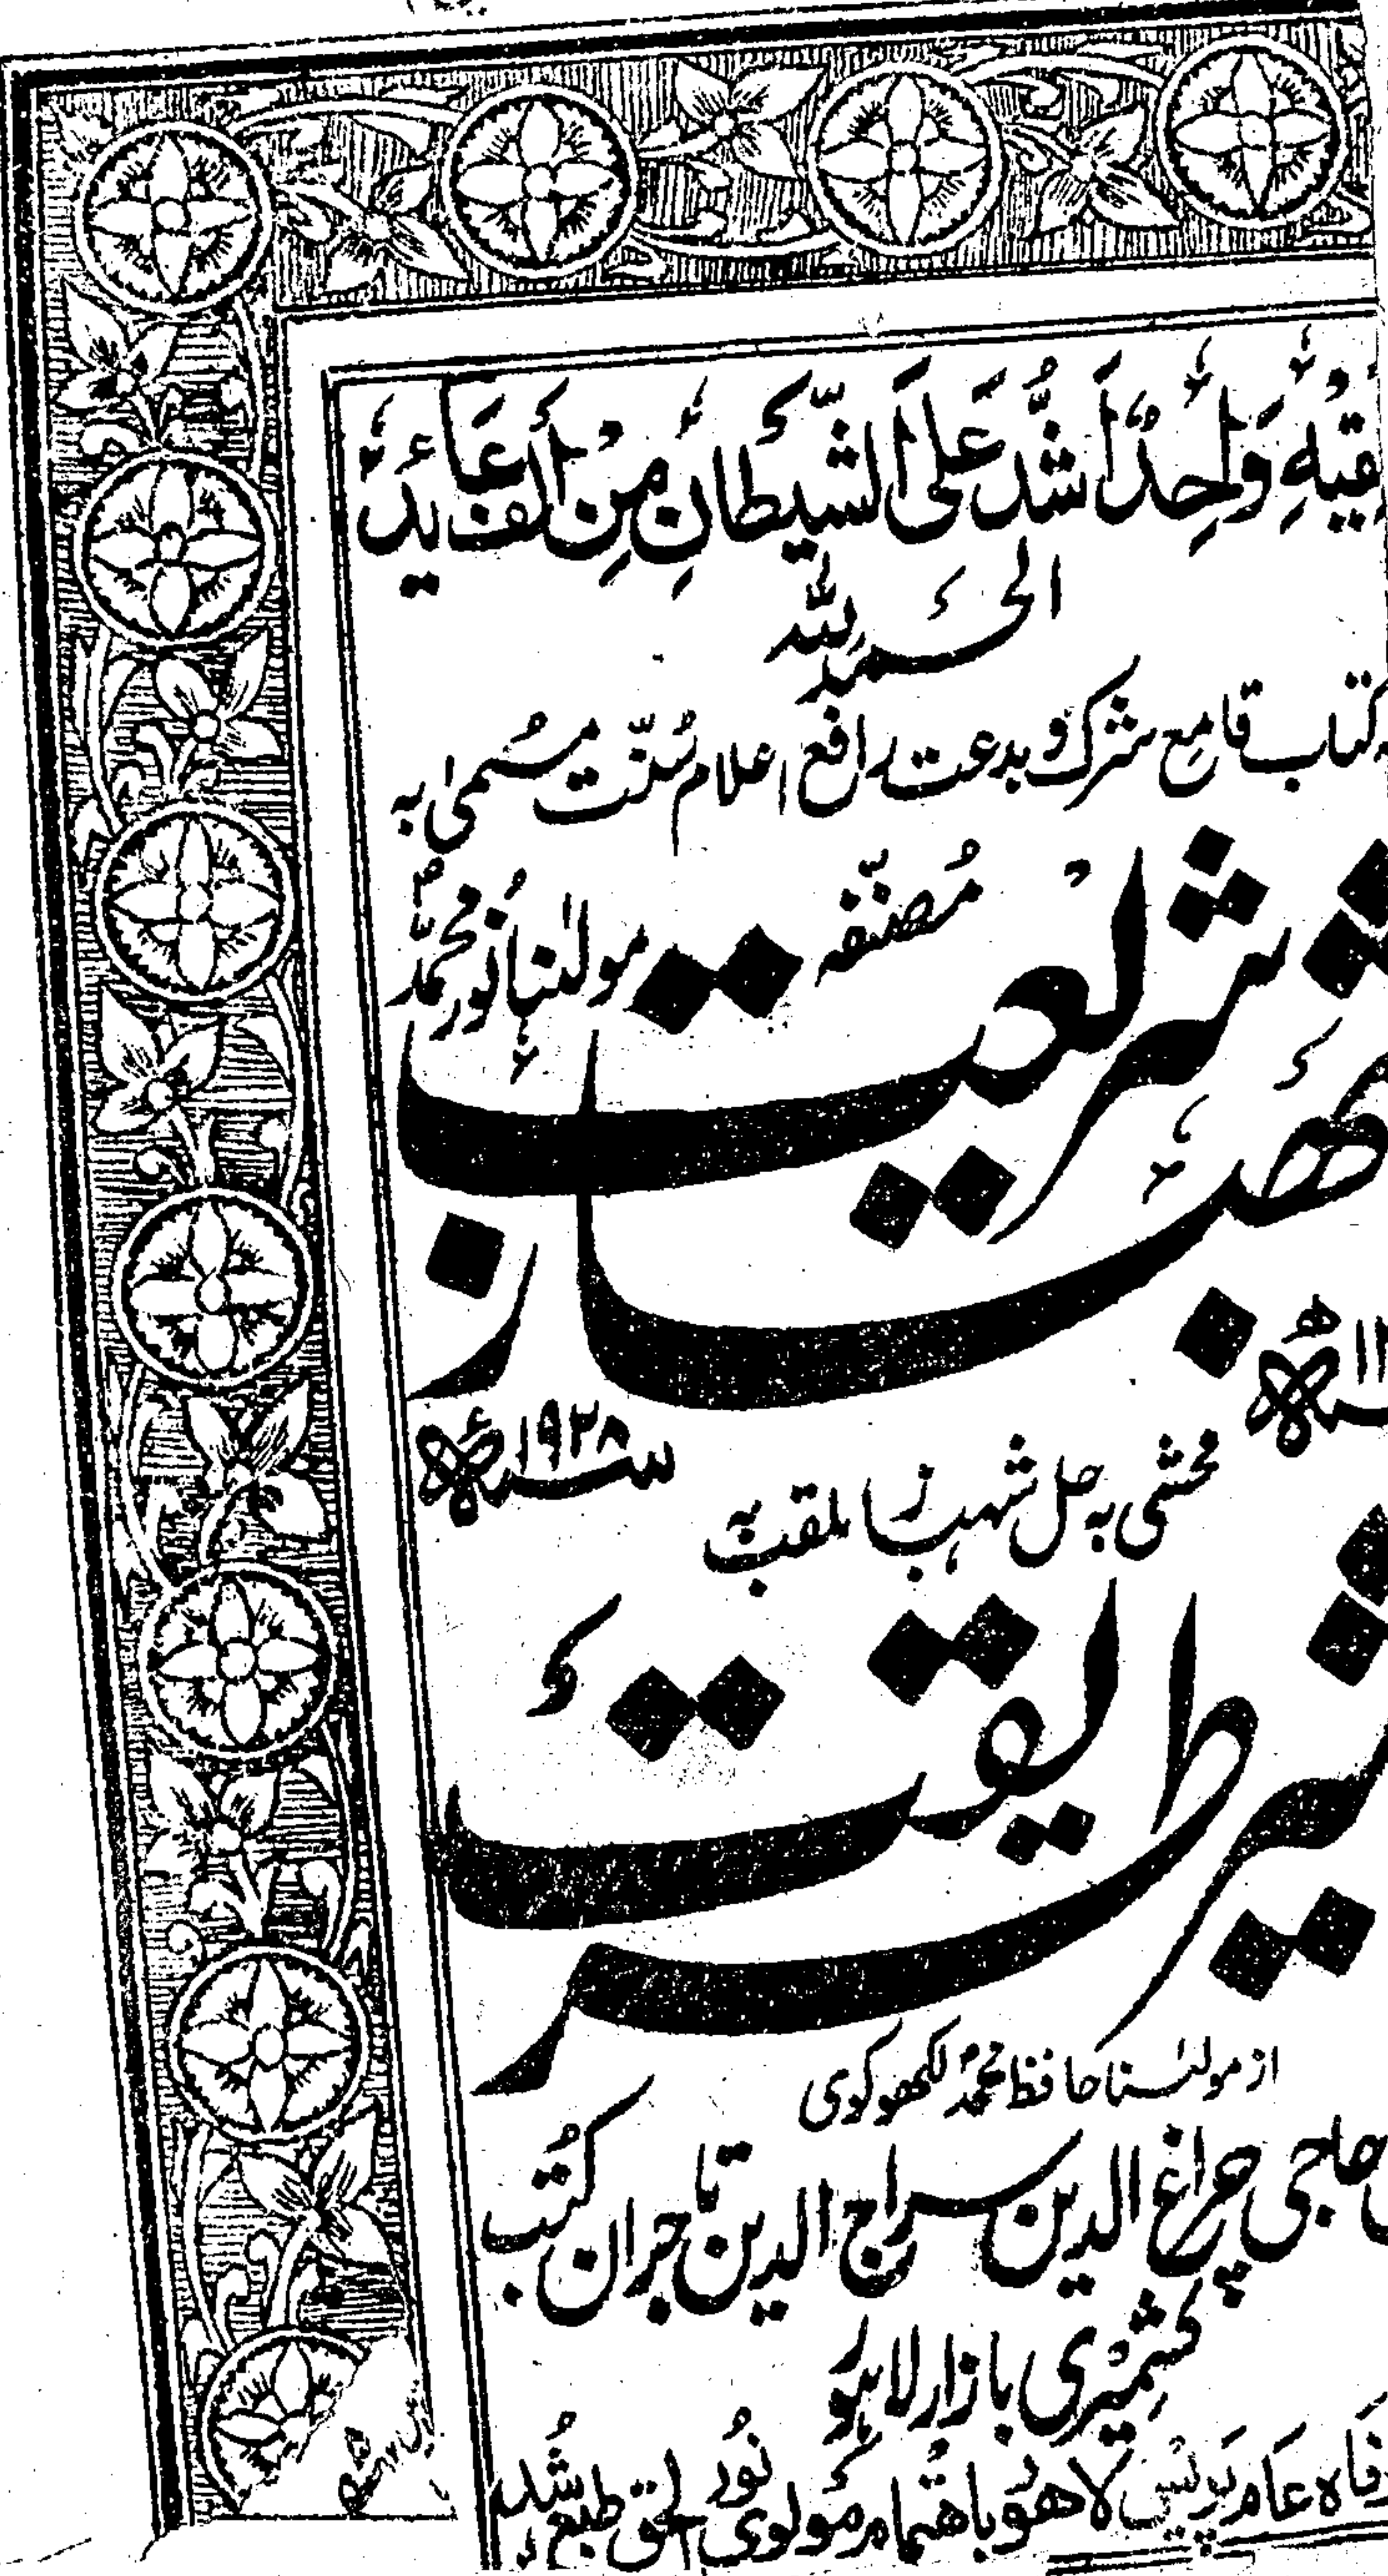 فَقِيْهٌ وَاحِدٌ اَشَدُّ عَلَى الشَّيْطَانِ مِنْ اَلْفِ عَابِدٍ
الحمد لله
کتاب قامع شرک و بدعت رافع اعلام سُنّت مسمیٰ به
شریعت
مُصنّفہ
مولٰنا نُور محمدؐ
شهباز
سنہ ۱۹۲۸ء
محشی بہ حل شہباز ملقب بہ
طریقت
از مولٰنا حافظ محمدؐ لکھوکوی
حاجی چراغ الدین سراج الدین تاجران کُتب
کشمیری بازار لاہور
رفاہ عام پریس لاھور باھتمام مولوی نُور الحق طبع شُد